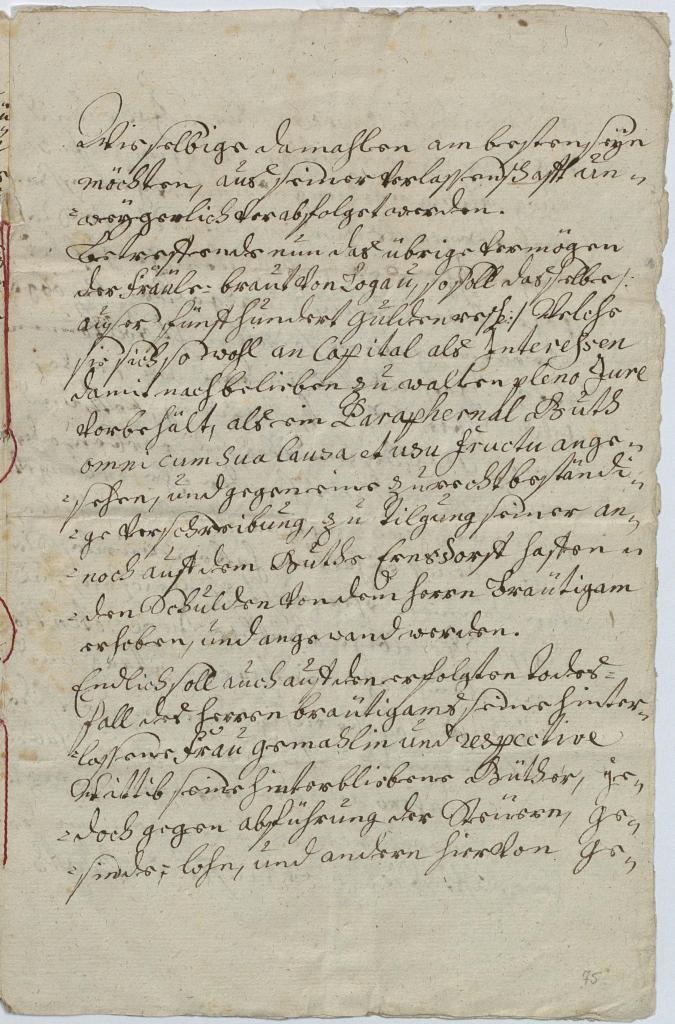 Wie selbige damahlen am besten seÿn
möchten, aus seiner verlassenschafft un-
-weÿgerlich verabfolget werden.
Betreffende nun das übrige vermögen
der Fräule-braut von Logau, so soll dasselbe /:
auser fünff hundert gulden resp: :/ Welche
sie sich so wohl an Capital als Interessen
damit nach belieben zu walten pleno Jure
vorbehält, als ein Paraphernal Guth
omni cum sua causa et usu fructu ange-
-sehen, und gegen eine zu recht beständi-
-ge verschreibung, zu Tilgung seiner an-
-noch auff dem Guthe Ernsdorff hafften
-den Schulden von dem Herrn Bräutigam
erhoben, und angewand werden.
Endlich soll auch auff den erfolgten todes-
fall des Herren bräutigams seine hinter-
-lassene Frau gemahlin und respective
Wittib seine hinterbliebene Güther, je-
-doch gegen abführung der Steüern, Ge-
-sinde-lohn, und andern hiervon Ge-
75